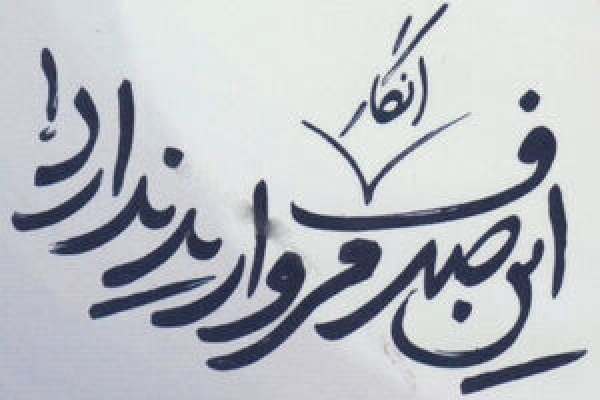 این صدف انگار مروارید ندارد!